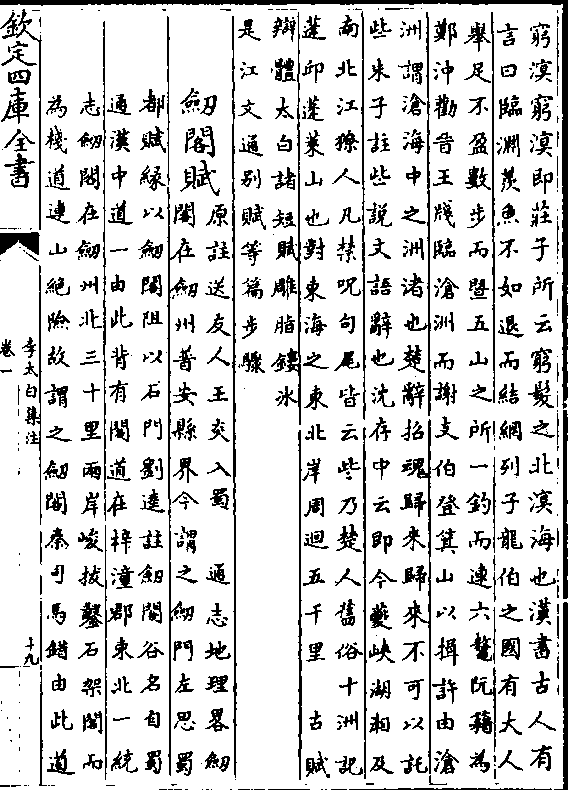 窮溟窮溟即莊子所云窮髮之北溟海也漢書古人有
言曰臨淵羨魚不如退而結網列子龍伯之國有大人
舉足不盈數步而暨五山之所一釣而連六鼇阮藉為
鄭沖勸晉王牋臨滄洲而謝支伯登箕山以揖許由滄
洲謂滄海中之洲渚也楚辭招魂歸來歸來不可以託
些朱子註些說文語辭也沈存中云即今夔峽湖湘及
南北江獠人凡禁呪句尾皆云些乃楚人舊俗十洲記
蓬邱蓬萊山也對東海之東北岸周迴五千里 古賦
辯體太白諸短賦雕脂鏤冰
是江文通別賦等篇步驟
劒閣賦
原註送友人王炎入蜀 通志地理畧劒
閣在劒州普安縣界今謂之劒門左思蜀
都賦緣以劒閣阻以石門劉逵註劒閣谷名自蜀
通漢中道一由此背有閣道在梓潼郡東北一統
志劒閣在劒州北三十里兩岸峻拔鑿石架閣而
為棧道連山絶險故謂之劒閣秦司馬錯由此道
欽定四庫全書
李太白集注
卷一
十九